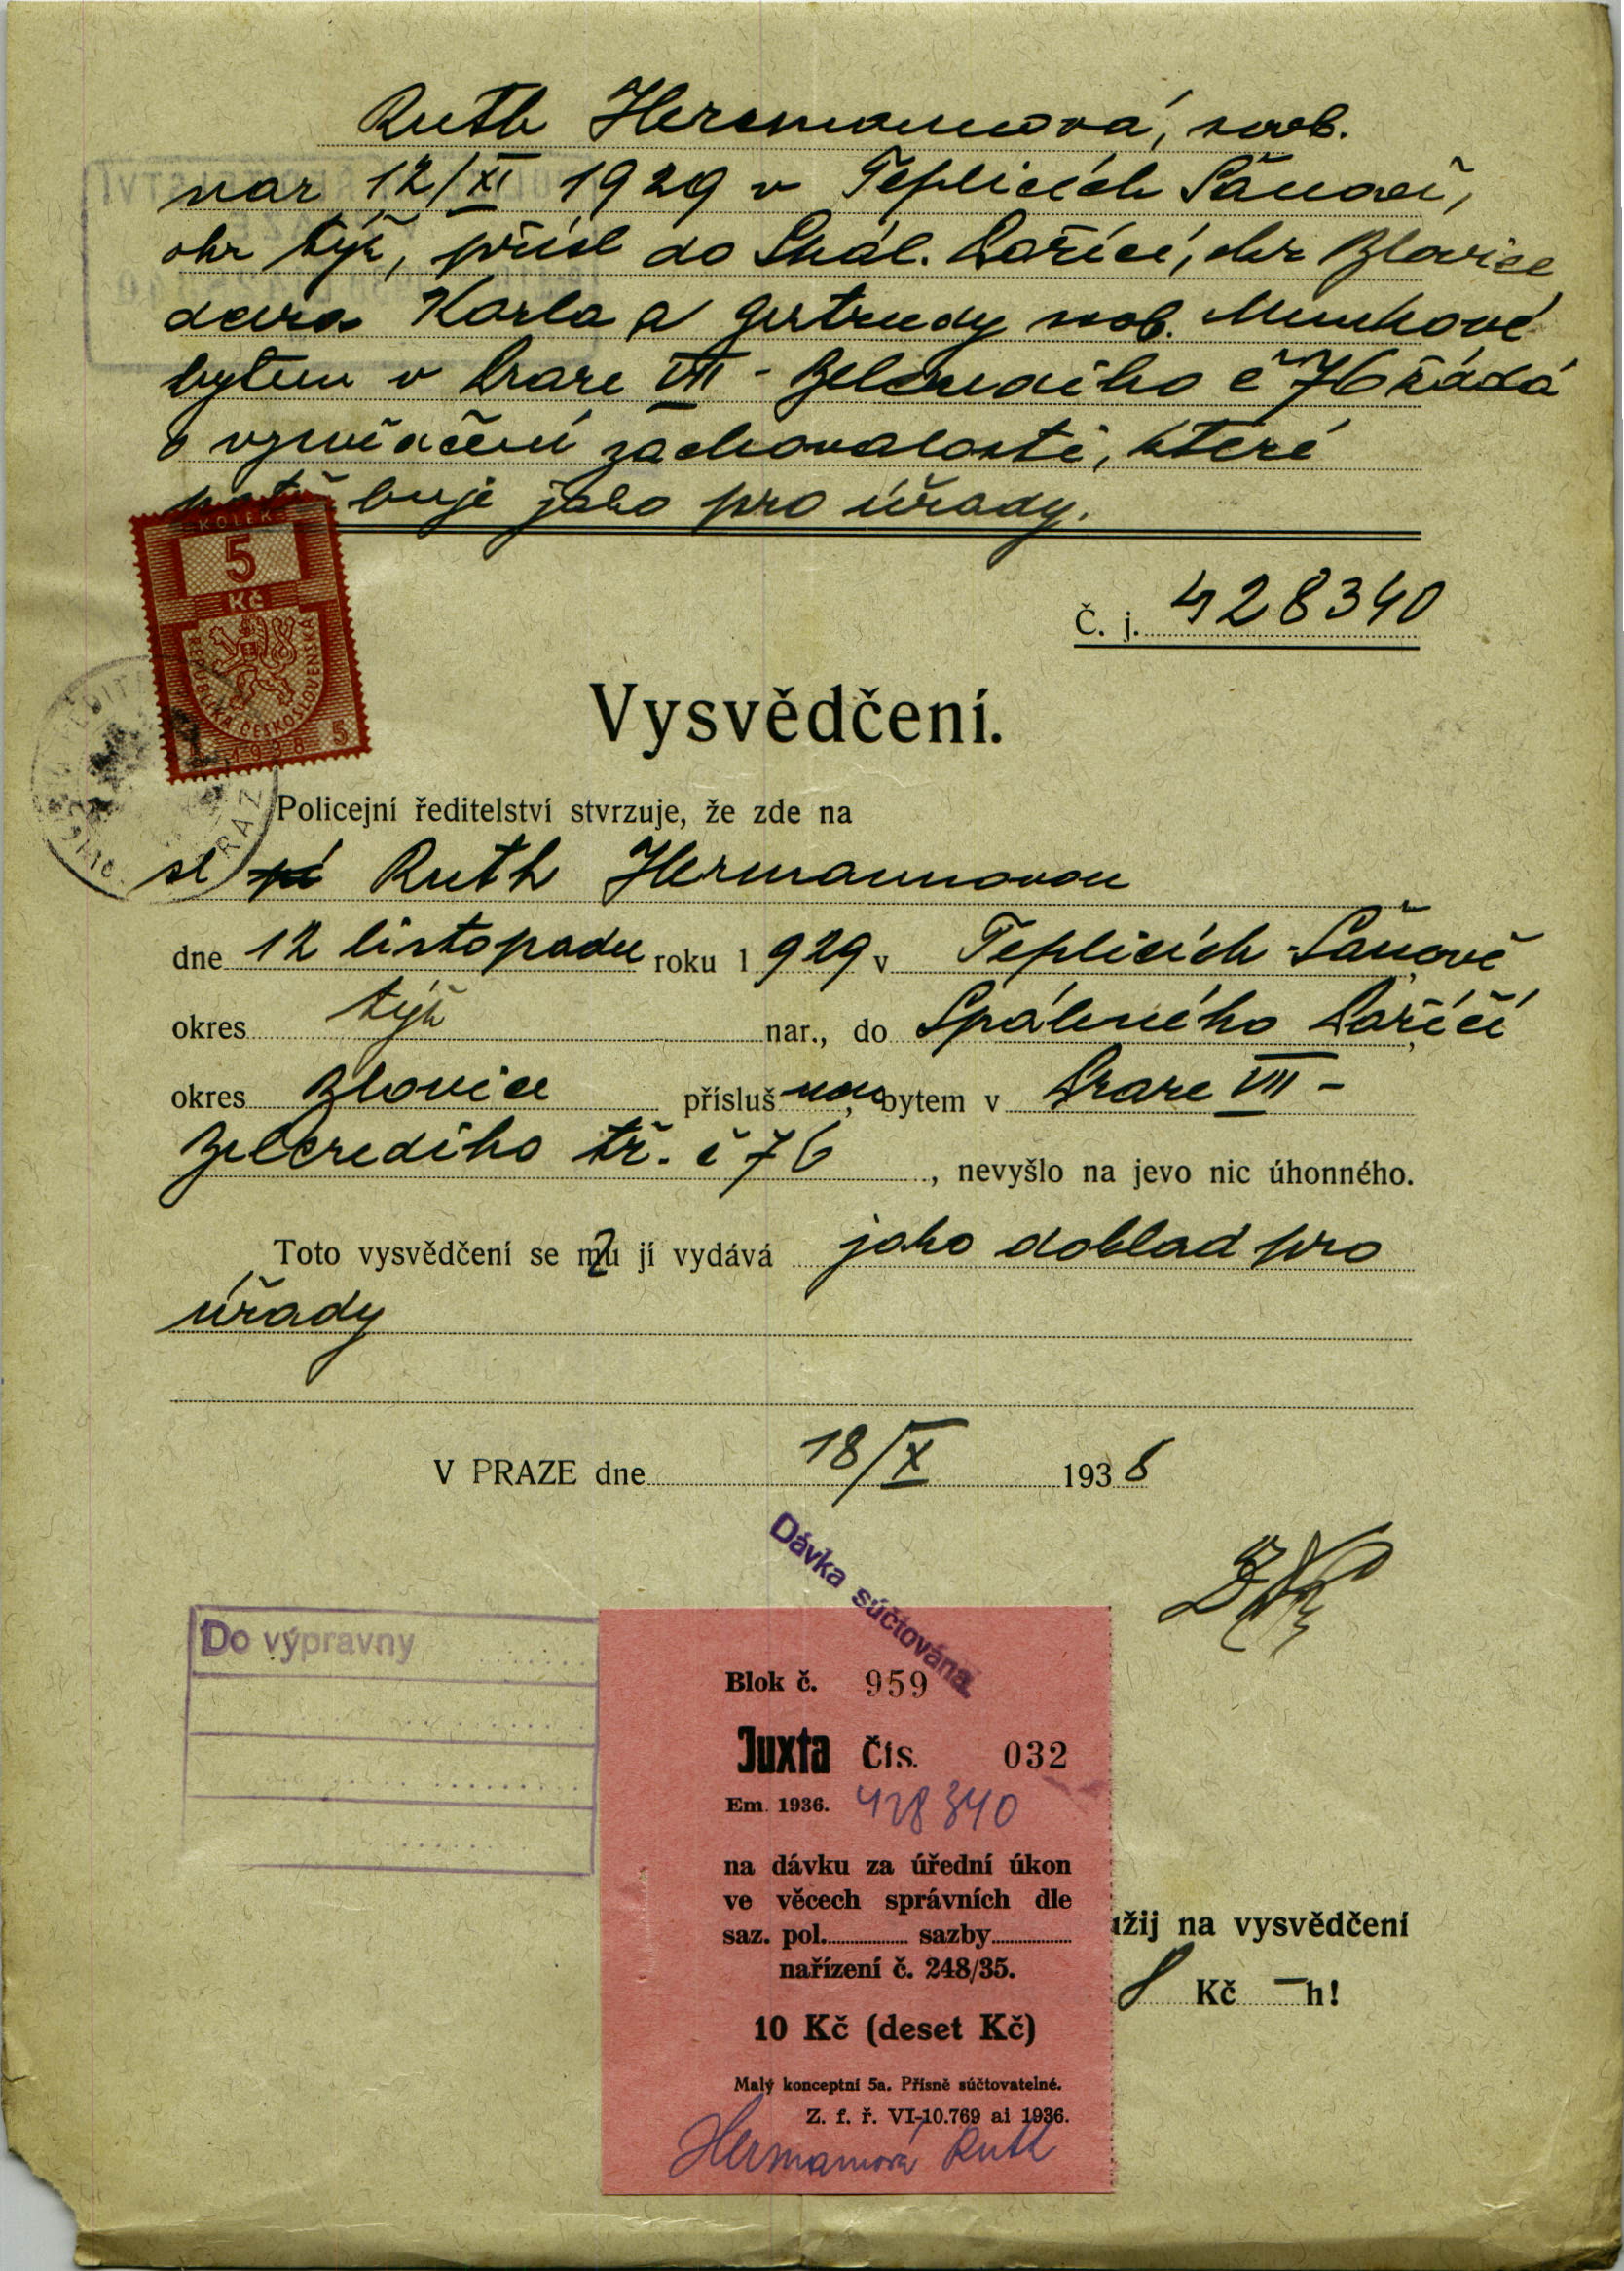 Ruth Hermannová, svob.
nar 12/XI 1929 v Teplicích Šanově,
okr týž, přísl do Spál. Poříčí, okr Blovice
dcera Karla a Gertrudy svob. Munkové
bytem v Praze VII - Belcrediho č 76 žádá
o vysvědčení zachovalosti, které
potřebuje jako pro úřady.
KOLEK
5
Kč
REPUBLIKA ČESKOSLOVENSKÁ
1938 5
Č. j. 428340
Vysvědčení.
Policejní ředitelství stvrzuje, že zde na
sl pí Ruth Hermannovou
dne 12 listopadu roku 1929 v Teplicích-Šanově
okres týž nar., do Spáleného Poříčí
okres Blovice příslušnou, bytem v Praze VII -
Belcrediho tř. č 76, nevyšlo na jevo nic úhonného.
Toto vysvědčení se mu jí vydává jako doklad pro
úřady
V PRAZE dne 18/X 1938
Dávka súčtována.
Do výpravny
Blok č. 959
Juxta Čís. 032
Em. 1936. 428340
na dávku za úřední úkon
ve věcech správních dle
saz. pol. sazby
nařízení č. 248/35.
10 Kč (deset Kč)
Malý konceptní 5a. Přísně súčtovatelné.
Z. f. ř. VI-10.769 ai 1936.
Hermannová Ruth
užij na vysvědčení
8 Kč — h!